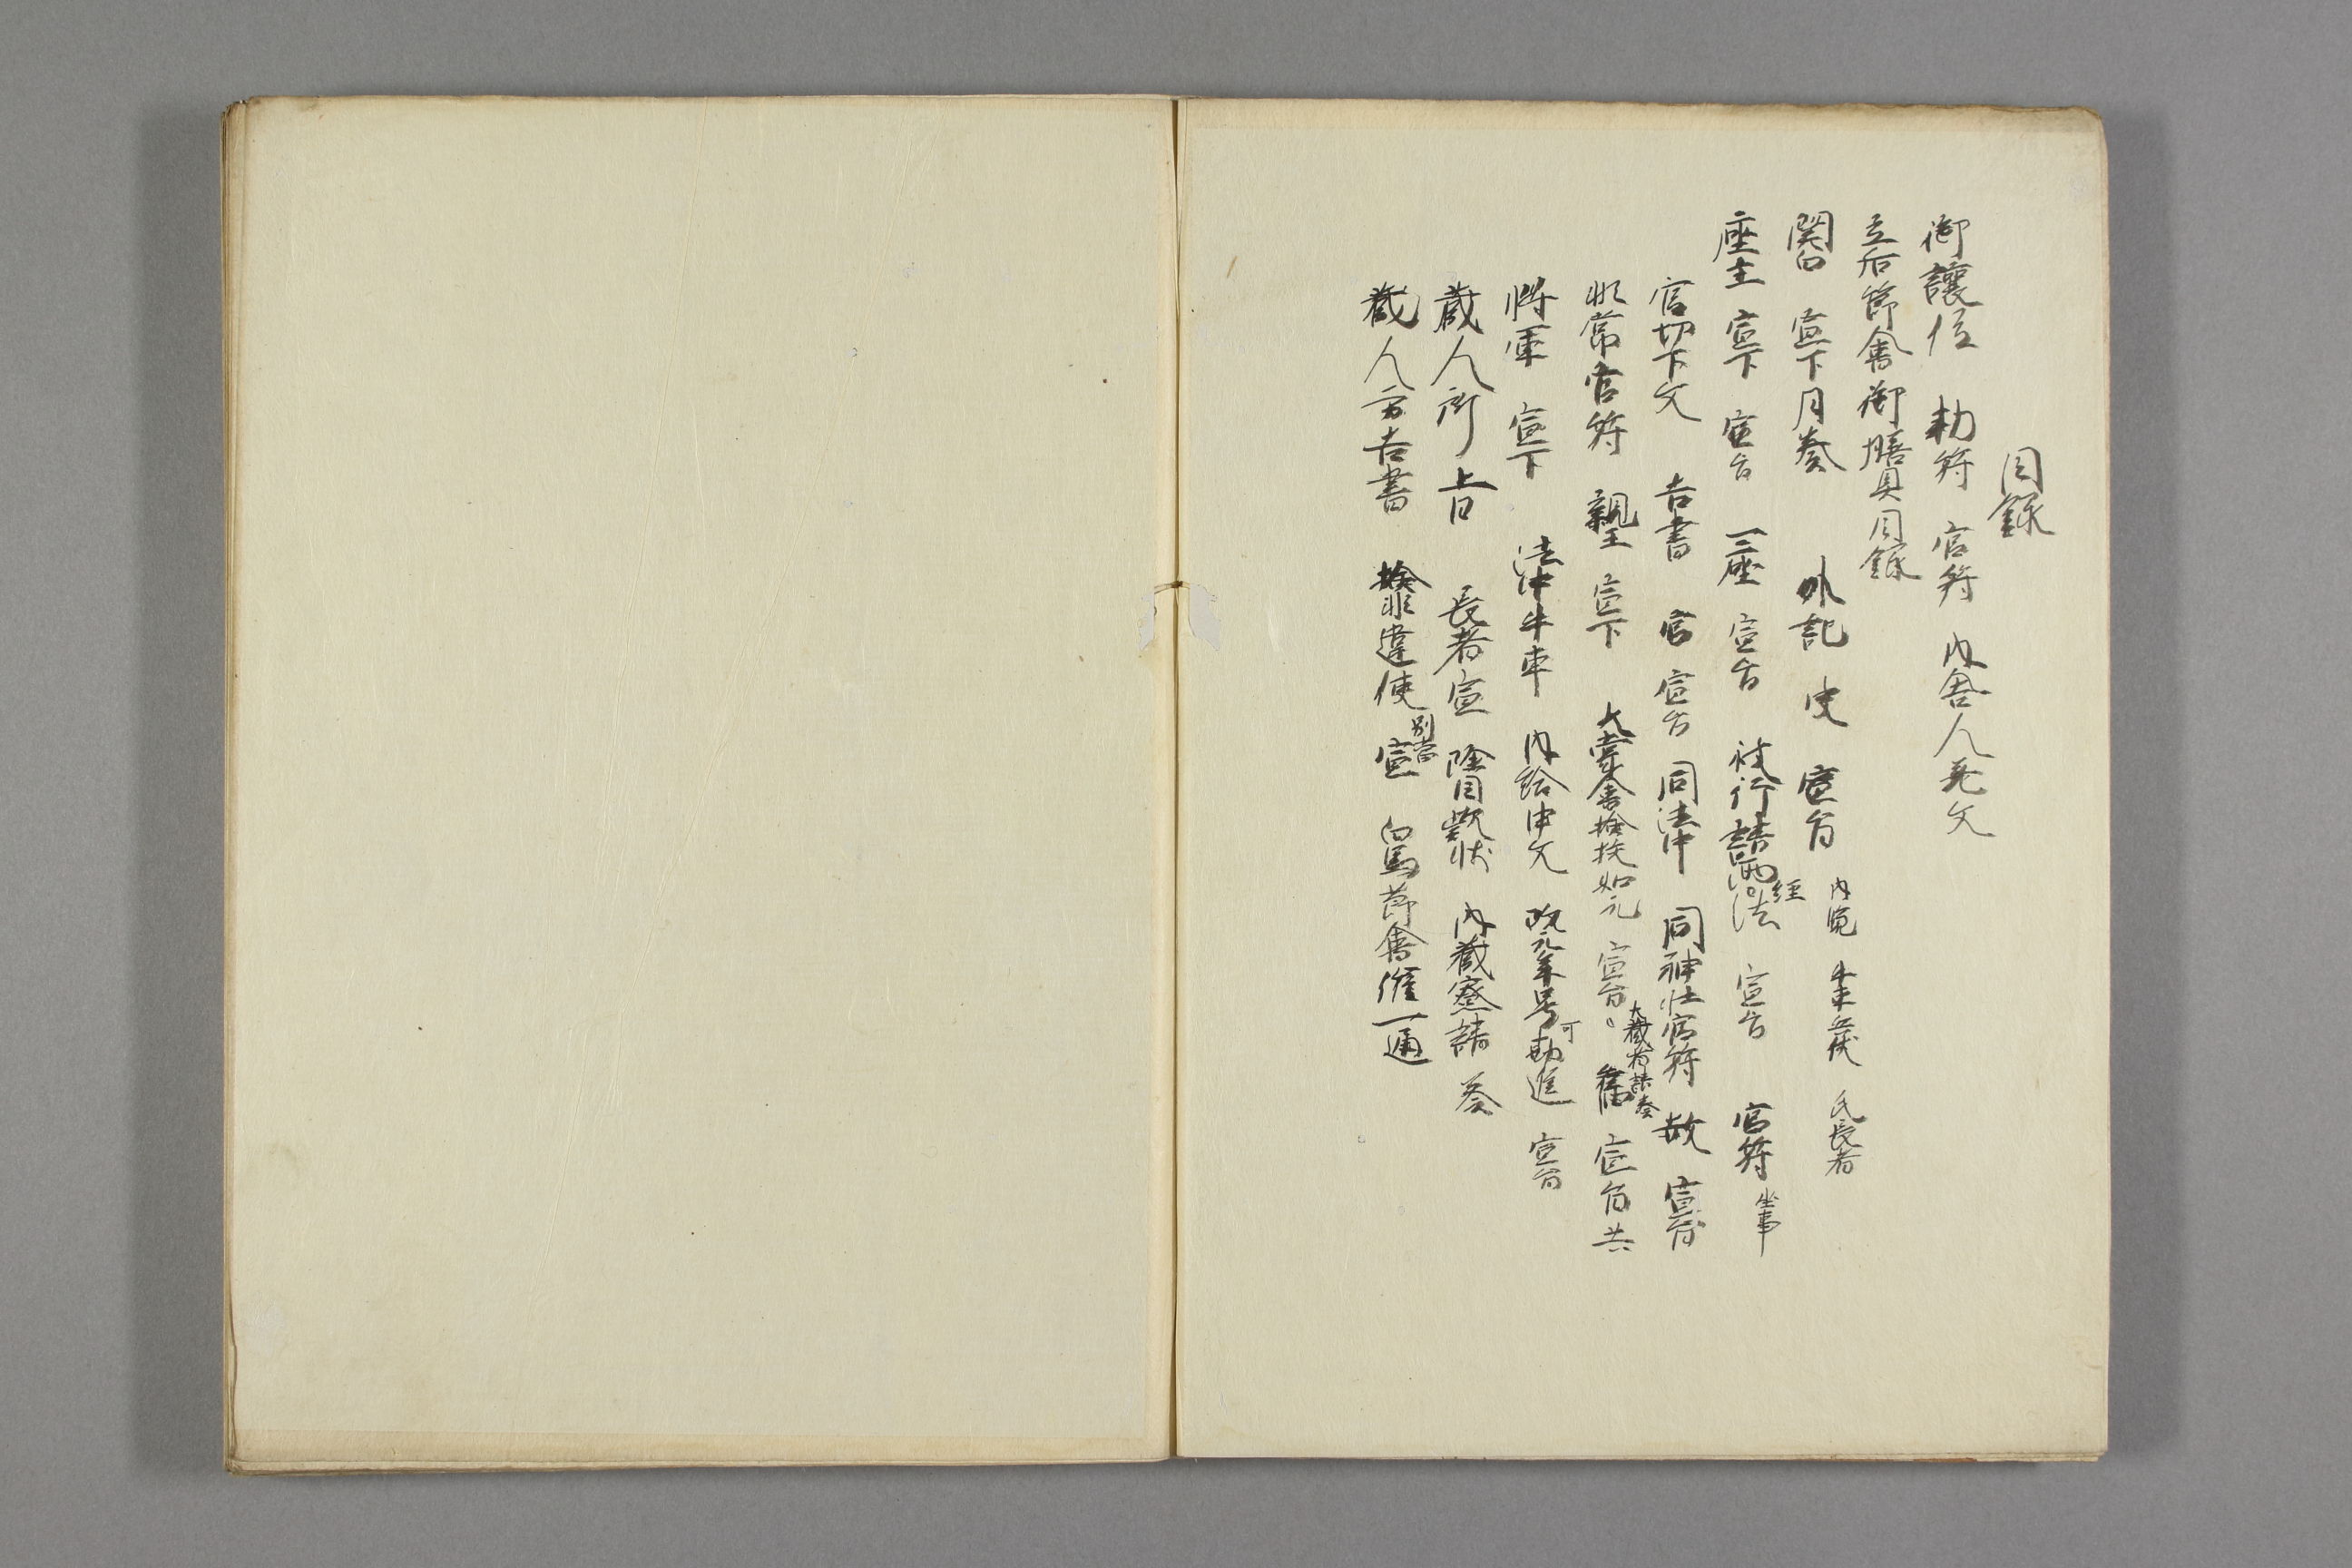 目録
御譲位 勅符 官符 内舎人 文
立后節會御膳具目録
関白 宣下月奏 外記 史 宣旨 内覧 牛車兵仗 氏長者
座主 宣下 宣旨 一座 宣旨 被行請雨経法 宣旨 官符 坐事
官切下文 吉書 官 宣旨 同法中 同神社官符 赦 宣旨
非常官符 親王 宣下 大嘗會検挍如元 宣旨 大蔵省請奏 舊 宣旨共
将軍 宣下 法中牛車 内給申文 改元年号可勘進 宣旨
蔵人所 上日 長者宣 除目歎状 内蔵寮請奏
蔵人方吉書 検非違使別當宣 白馬節會 一通